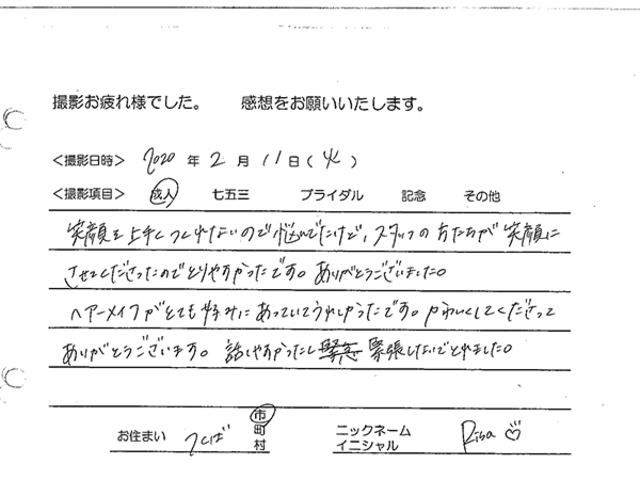 撮影お疲れ様でした。 感想をお願いいたします。
<撮影日時> 2020 年 2 月 11 日 (火)
<撮影項目> 成人 七五三 ブライダル 記念 その他
笑顔を上手くつくれないので悩んでたけど、スタッフの方たちが笑顔に
させてくださったのでとりやすかったです。ありがとうございました。
ヘアーメイクがとても好みにあっていてうれしかったです。かわいくしてくださって
ありがとうございます。話しやすかったし緊張しないでとれました。
お住まい つくば 市町村 ニックネーム イニシャル Risa ♡